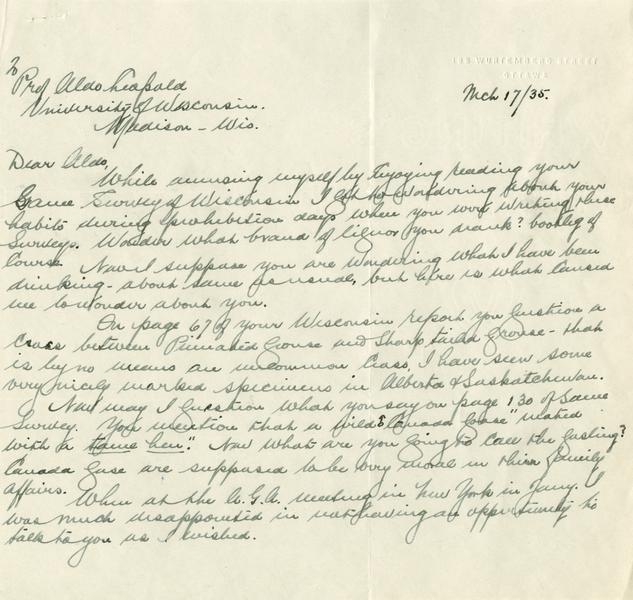 198 WURTEMBERG STREET
OTTAWA
Mch 17/35.
To
Prof Aldo Leopold
University of Wisconsin.
Madison - Wis.
Dear Aldo,
While amusing myself by Enjoying reading your
Game Survey of Wisconsin I got to Wondering about your
habits during prohibition days when you were writing these
Surveys. Wonder what brand of liquor you drank? bootleg of
Course. Now I suppose you are wondering what I have been
drinking - about same as usual, but here is what Caused
me to Wonder about you.
On page 67 of your Wisconsin report you Question a
Cross between Pinnated Grouse and Sharp tailed Grouse - that
is by no means an uncommon Cross, I have seen some
very nicely marked specimens in Alberta & Saskatchewan.
Now may I Question what you say on page 130 of Same
Survey. You mention that a wild "Canada Goose" mated
with a "tame hen". Now what are you going to call the Gosling?
Canada Geese are supposed to be very moral in their family
affairs. When at the A.G.A. meeting in New York in Jany. I
was much disappointed in not having an opportunity to
talk to you as I wished.